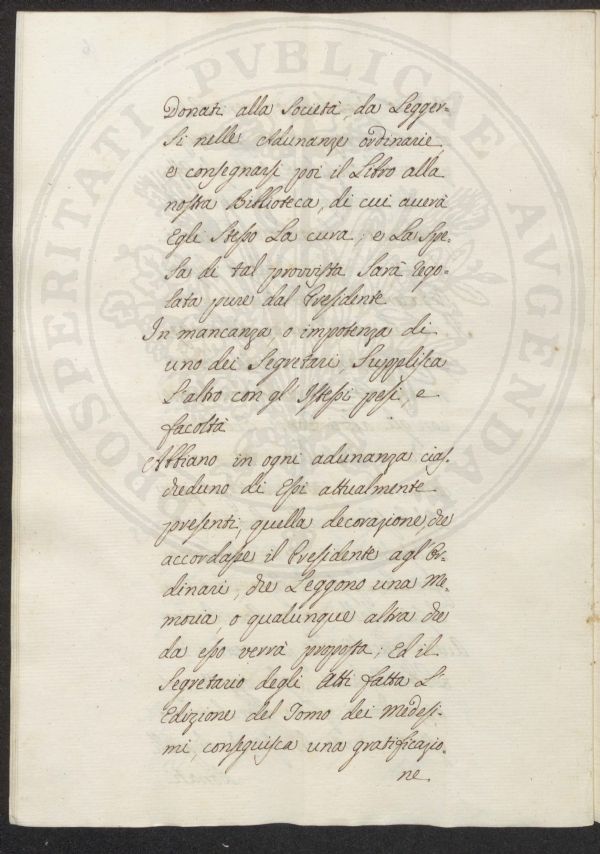 Donati alla Società, da Legger-
si nelle Adunanze ordinarie,
e consegnarsi poi il Libro alla
nostra Biblioteca, di cui averà
Egli stesso La cura; e La Spe-
sa di tal provvista Sarà rego-
lata pure dal Presidente
In mancanza, o impotenza di
uno dei Segretari, Supplisca
L'altro con gl'Istessi pesi, e
facoltà
Abbiano in ogni adunanza cias-
cheduno di Essi attualmente
presenti, quella decorazione, che
accordasse il Presidente agl'Or-
dinari, che Leggono una Me-
moria, o qualunque altra che
da esso verrà proposta; Ed il
Segretario degli Atti fatta L'
Edizione del Tomo dei Medesi-
mi, conseguisca una gratificazio-
ne
PROSPERITATI PVBLICAE AVGENDAE